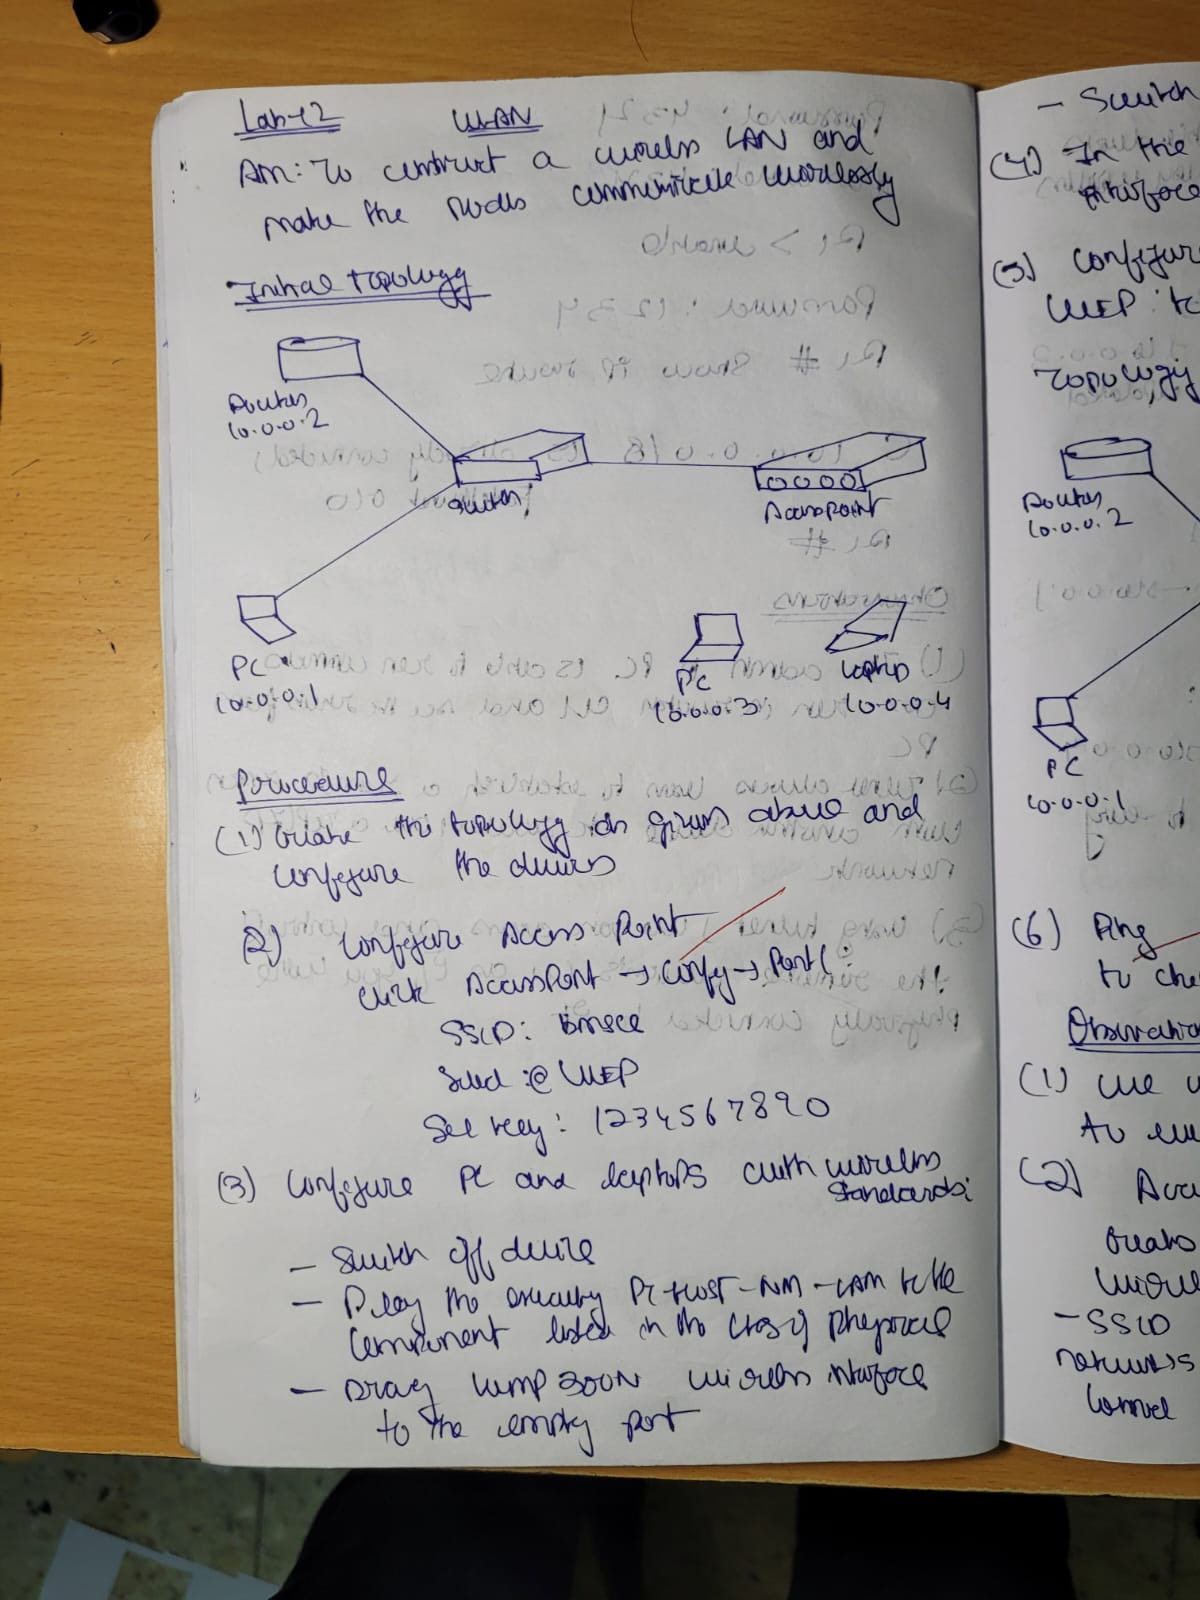 Lab-12 WLAN
Aim: To construct a wireless LAN and
make the nodes communicate wirelessly
Initial topology
Router
10.0.0.2
Switch
Accesspoint
PC
10.0.0.1
PC
10.0.0.3
Laptop
10.0.0.4
Procedure
(1) Create the topology as given above and
configure the devices
(2) Configure Access Point
click AccessPoint → Config → Port1:
SSID: bmsce
WEP
key: 1234567890
(3) Configure PC and laptops with wireless
standards:
- Switch off device
- Drag the existing PT-HOST-NM-1AM to the
component listed in the LHS of physical
- Drag WMP300N wireless interface
to the empty port
- Switch
(4) In the
interface
(5) Configure
WEP
Topology
Router
10.0.0.2
PC
10.0.0.1
(6) Ping
to che
Observation
(1) We
to
(2) Acce
creates
wirele
- SSID
networks